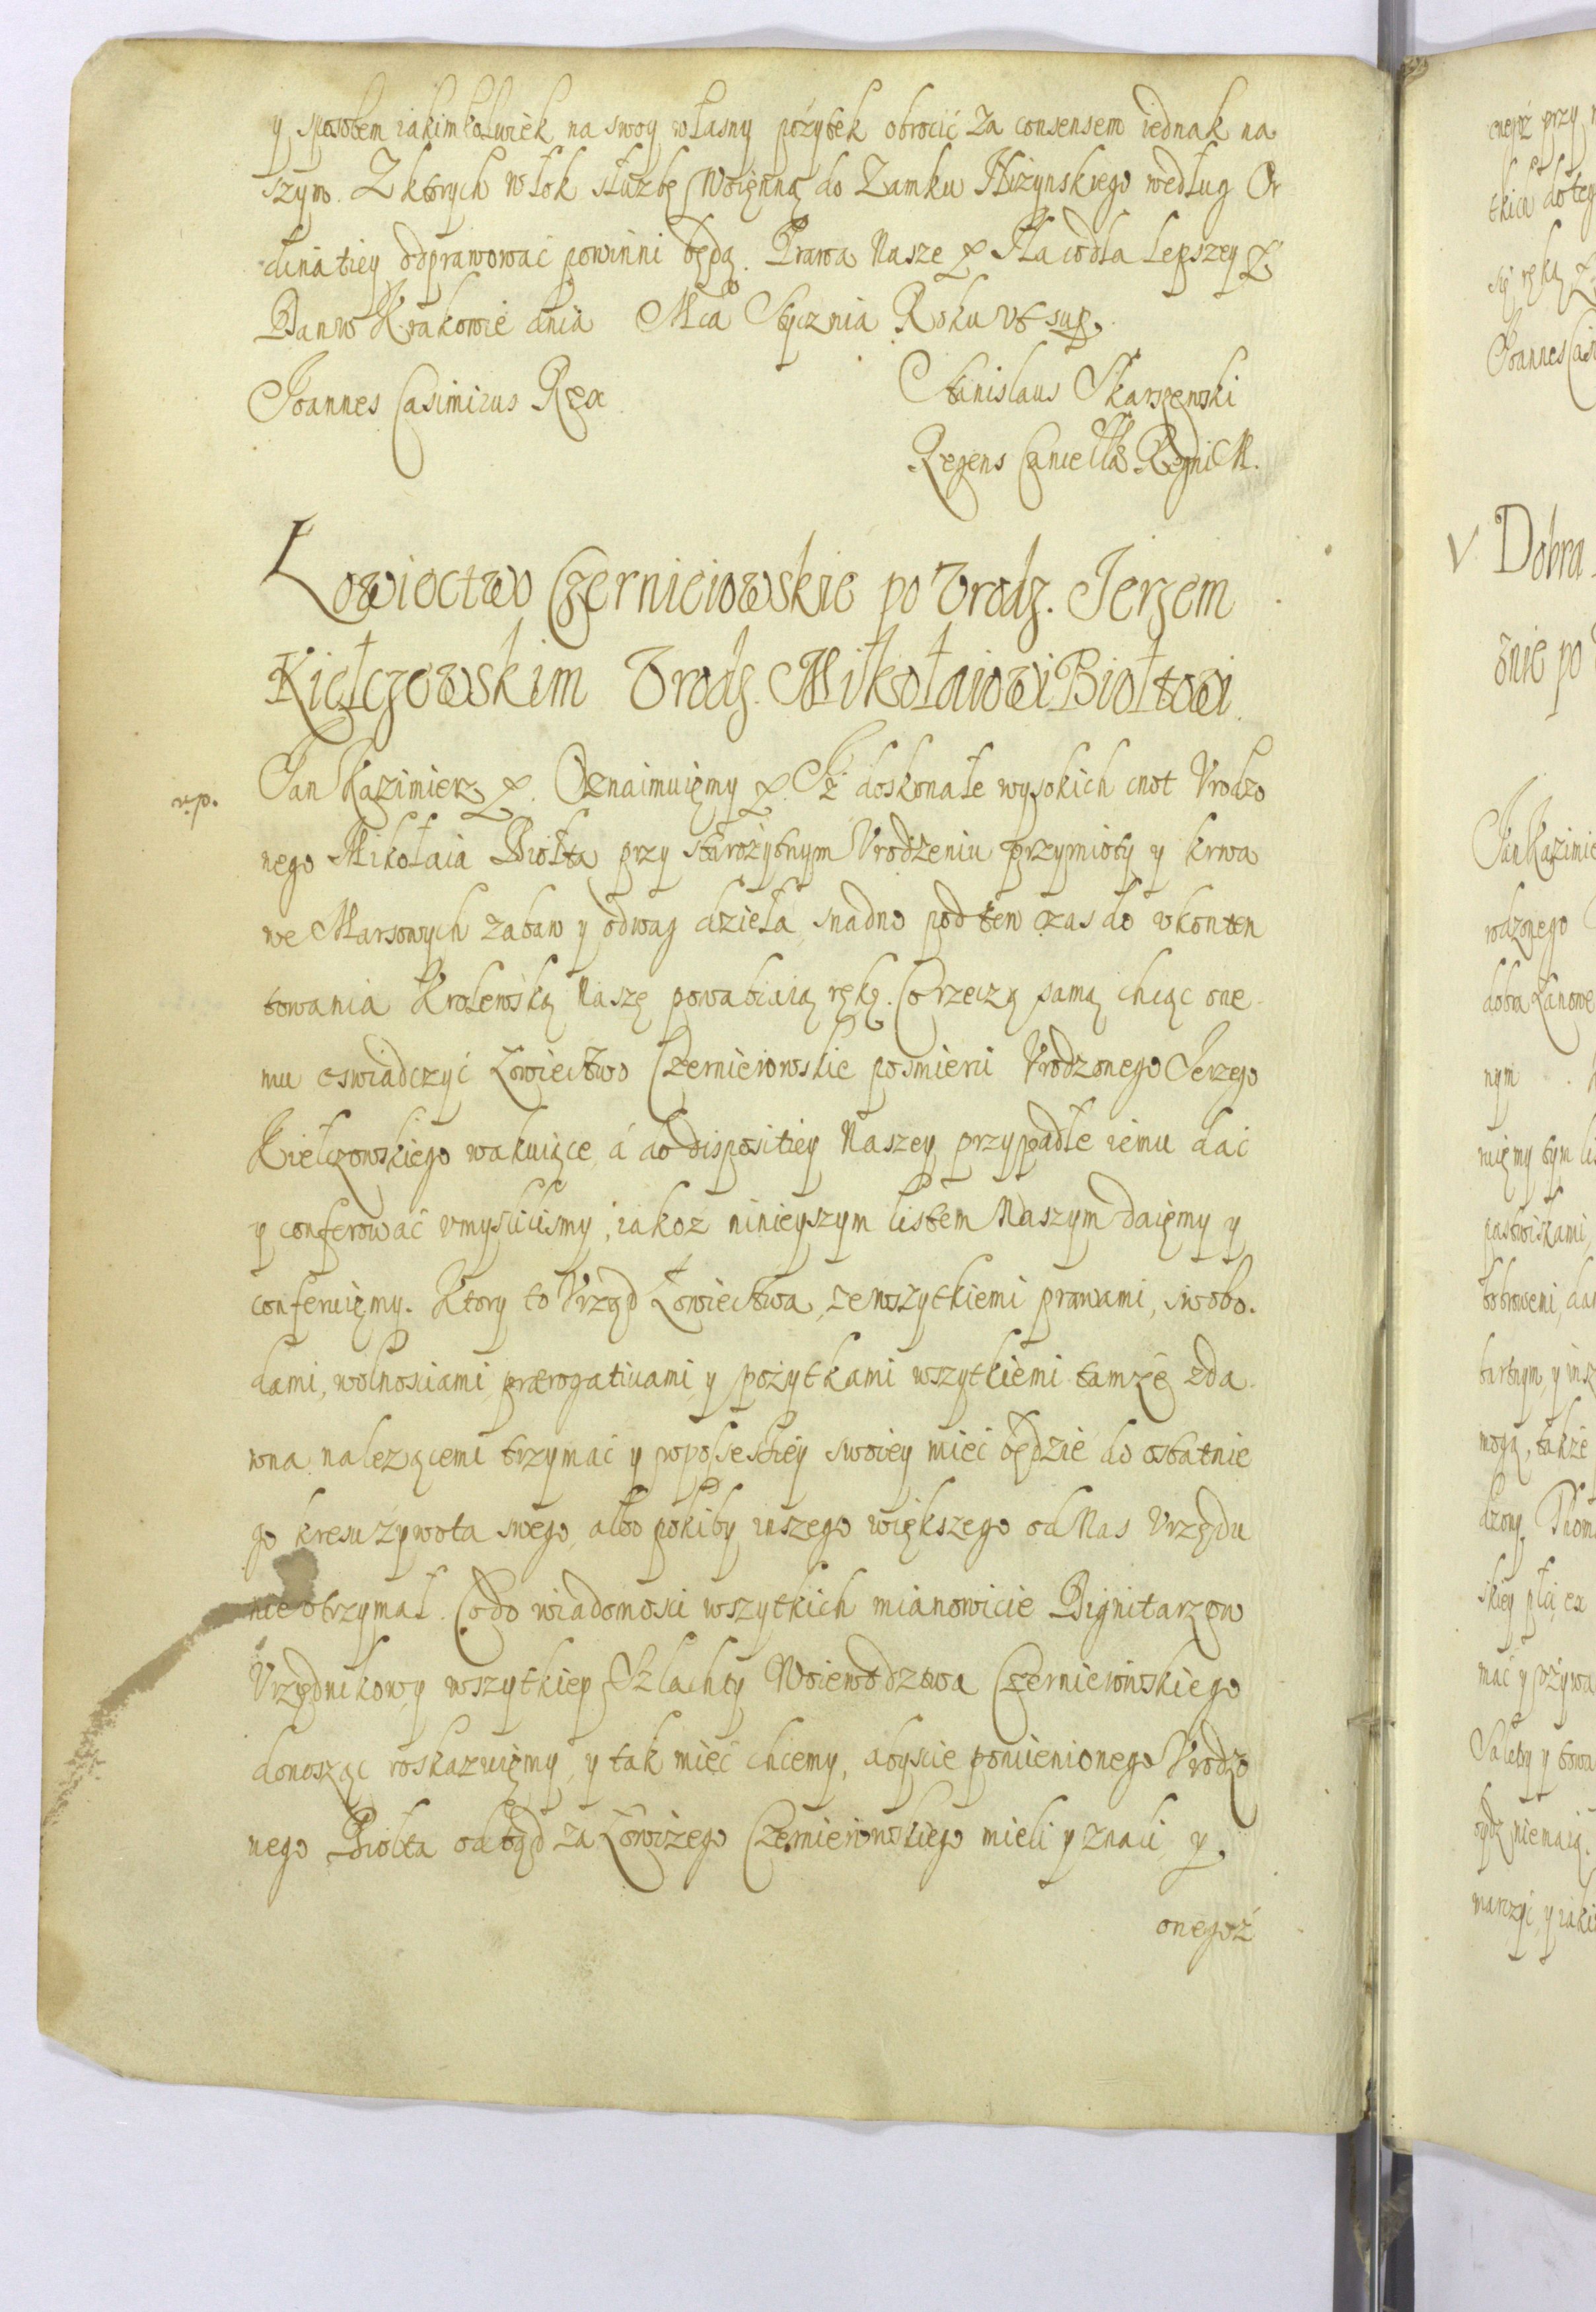 y sposobem iakimkolwiek na swoy własny pożytek obrocić za consensem iednak na
szym. Z ktorych włok służbę Woięnną do Zamku Niżynskiego według Or
dinatiey odprawować powinni będą. Prawa Nasze &c. Na co dla lepszey &c.
Dan w Krakowie dnia Mca Stycznia Roku vt sup.
Joannes Casimirus Rex
Stanislaus Skarszewski
Regens Cancellae Regni M.
Łowiectwo Czernieiowskie po Vrodz. Jerzem
Kiełczowskim Vrodz. Mikołaiowi Biołtowi.
Jan Kazimierz &c. Oznaimuięmy &c. Iż doskonałe wysokich cnot Vrodzo
nego Mikołaia Biołta przy starożytnym Vrodzeniu przymioty y krwa
we Marsowych zabaw y odwag dzieła, snadno pod ten czas do vkonten
towania Krolewską Naszę powabiaią rękę. Co rzeczą samą chcąc one
mu oswiadczyć Łowiectwo Czernieiowskie po smierci Vrodzonego Jerzego
Kiełczowskiego wakuiące, á do dispositiey Naszey przypadłe iemu dać
y conferować vmyslilismy, iakoż ninieyszym listem Naszym daięmy y
conferuięmy. Ktory to Vrząd Łowiectwa, ze wszytkiemi prawami, swobo.
dami, wolnosciami, praerogatiuami, y pożytkami wszytkiemi tamże zda
wna należącemi trzymać y w possessiey swoiey mieć będzie do ostatnie
go kresu żywota swego, albo pokiby inszego większego od Nas Vrzędu
nie otrzymał. Co do wiadomosci wszytkich mianowicie Dignitarzow
Vrzędnikow, y wszytkiey Szlachty Woiewodztwa Czernieiowskiego
donosząc roskazuięmy, y tak mieć chcemy, abyscie pomienionego Vrodzo
nego Biołta odtąd za Łowczego Czernieiowskiego mieli y znali, y
onegoż
v.p.
V Dobra